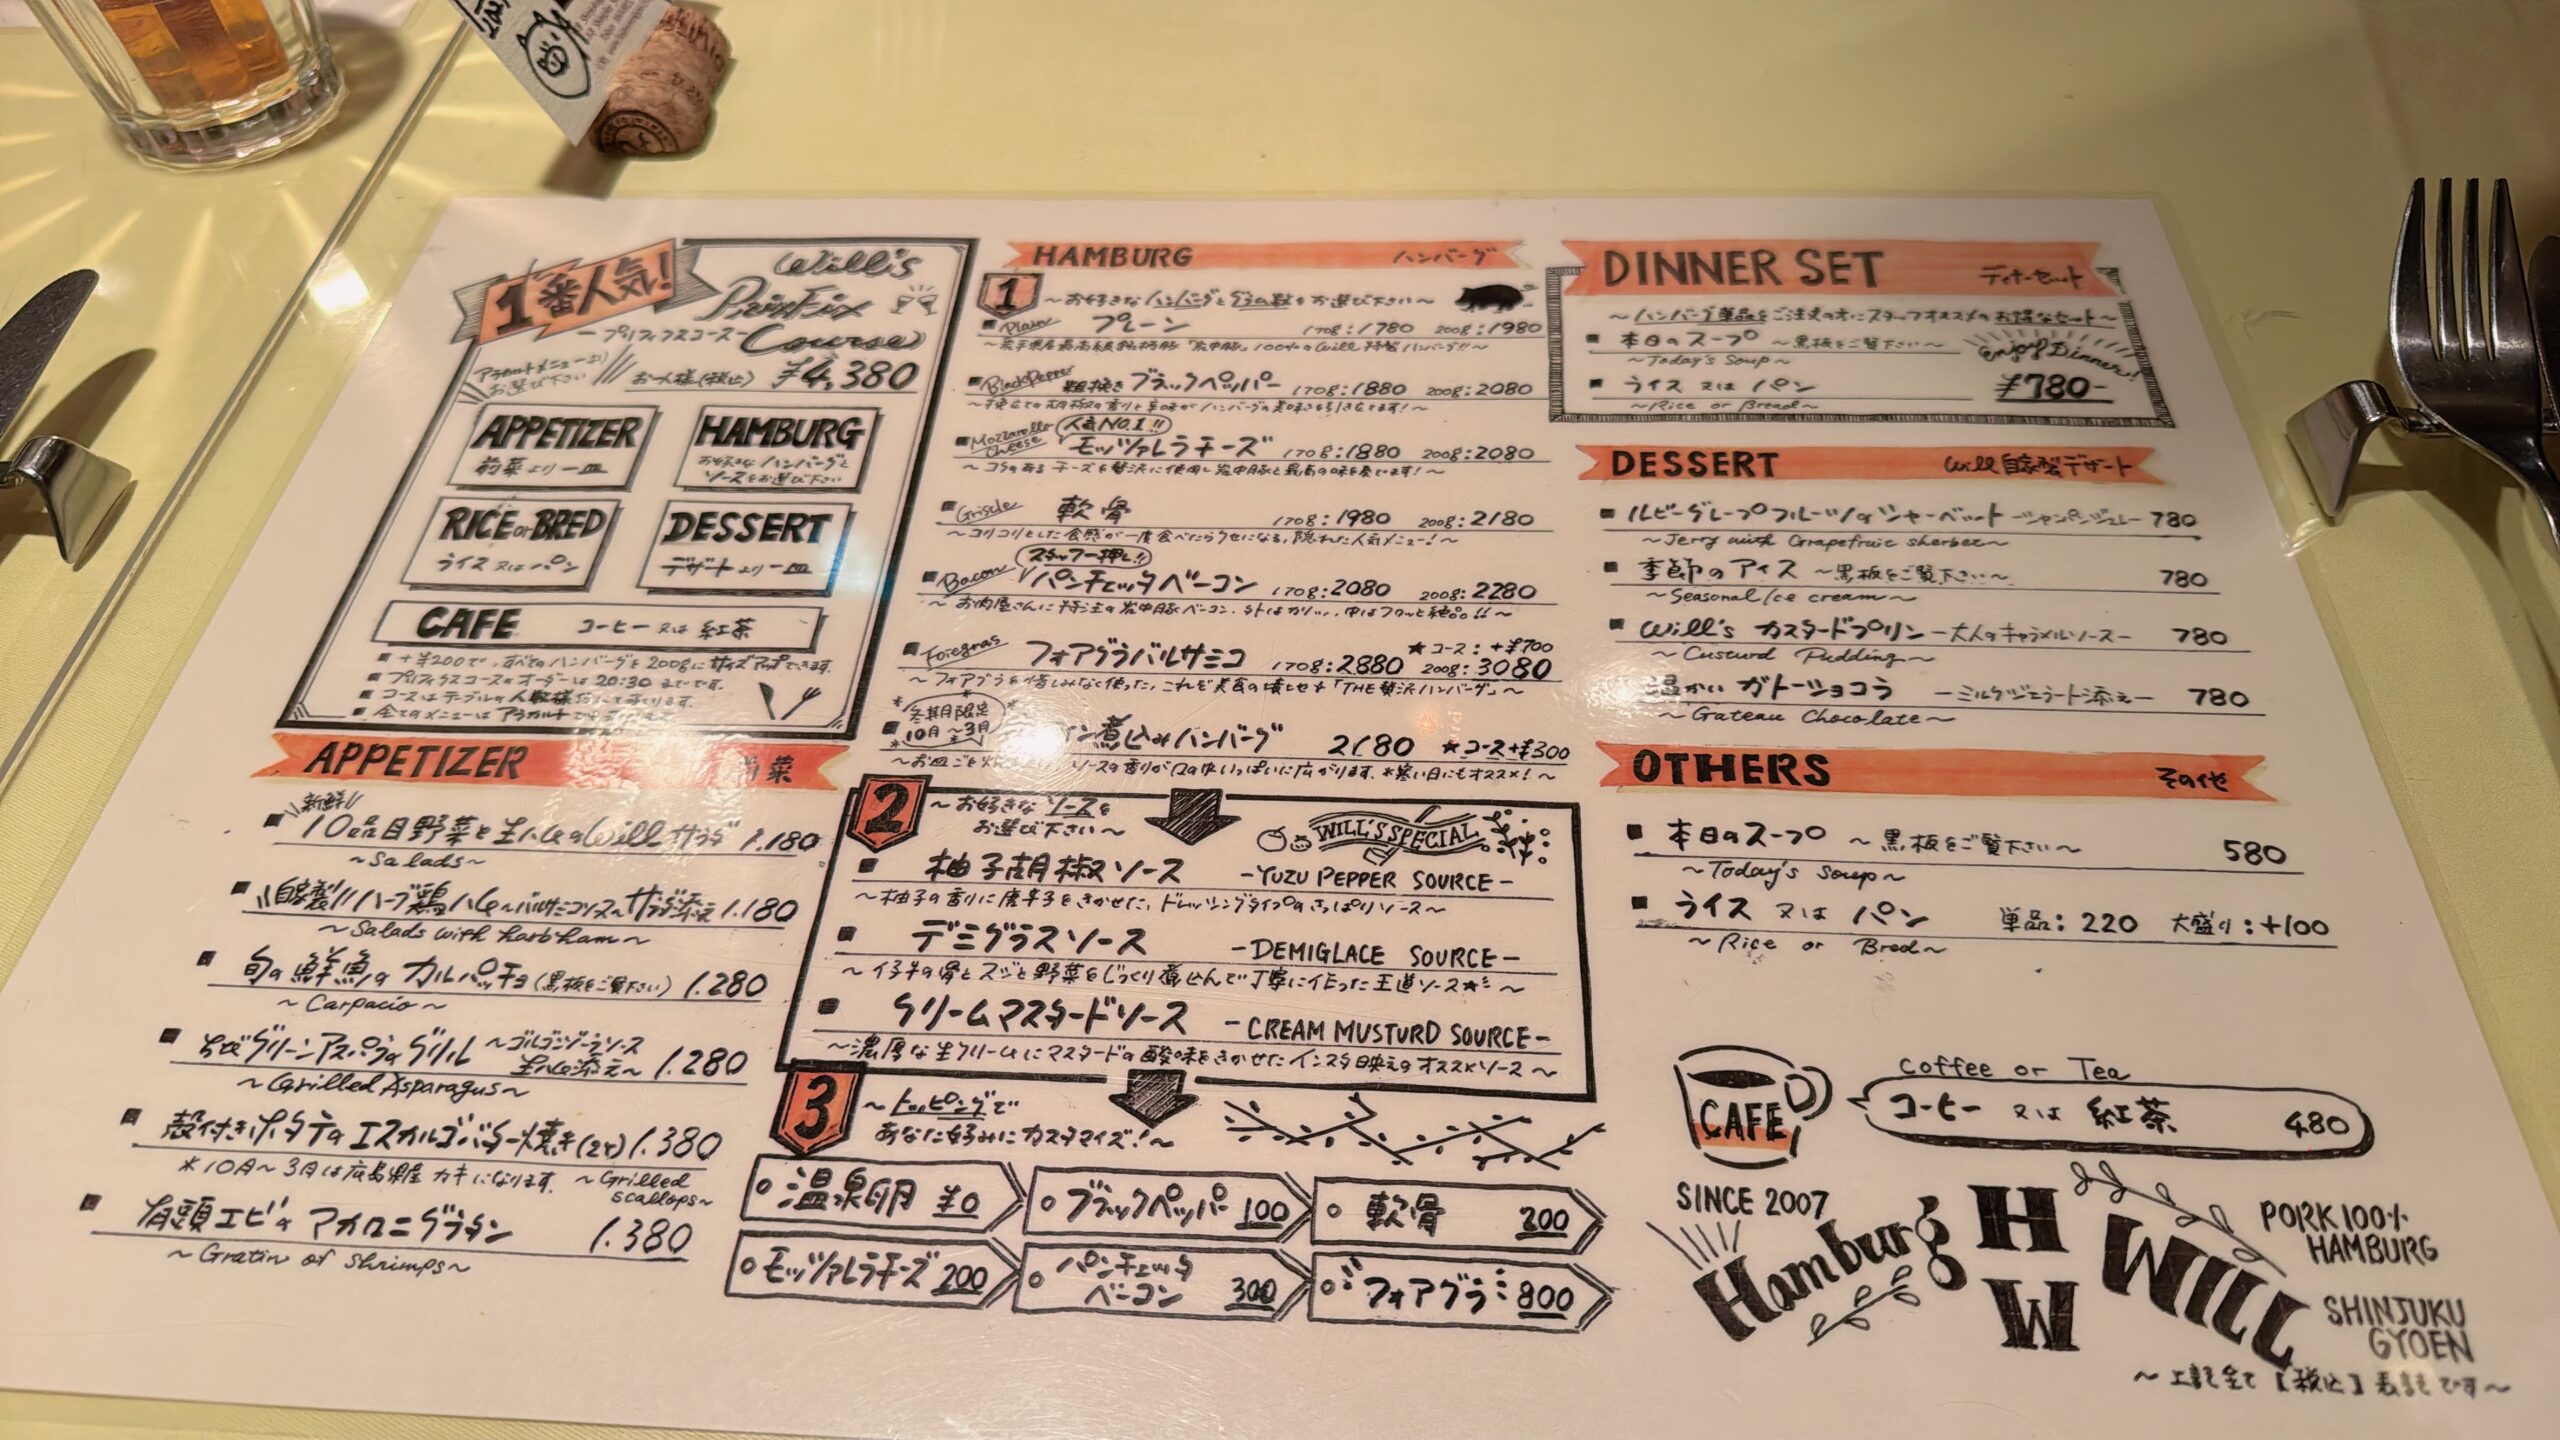 1番人気!
Will's
PrixFix
Course
ープリフィクスコースー
アラカルトメニューより
お選び下さい
お一人様(税込) ¥4,380
APPETIZER
前菜より一皿
HAMBURG
お好きなハンバーグと
ソースをお選び下さい
RICE or BRED
ライス又はパン
DESSERT
デザートより一皿
CAFE コーヒー又は紅茶
■ +¥200で、すべてのハンバーグを200gにサイズアップできます。
■ プリフィクスコースのオーダーは20:30までです。
■ コースはテーブルの人数様
■ 全てのメニューはアラカルト
APPETIZER 前菜
新鮮
■ 10品目野菜と生ハムのWillサラダ 1.180
~Salads~
■ 自家製 ハーブ鶏ハム~バルサミコソース~サラダ添え 1.180
~Salads with harb ham~
■ 旬の鮮魚のカルパッチョ(黒板をご覧下さい) 1.280
~Carpacio~
■ ちびグリーンアスパラのグリル ~ゴルゴンゾーラソース
生ハム添え~ 1.280
~Grilled Asparagus~
■ 殻付きホタテのエスカルゴバター焼き(2ヶ) 1.380
*10月~3月は広島県産カキになります。 ~Grilled
scallops~
■ 有頭エビのマカロニグラタン 1.380
~Gratin of shrimps~
HAMBURG ハンバーグ
1 ~お好きなハンバーグとグラム数をお選び下さい~
■ Plain プレーン 170g:1780 200g:1980
~岩手県産最高級銘柄豚「岩中豚」100%のWill特製ハンバーグ!!~
■ BlackPepper 粗挽きブラックペッパー 170g:1880 200g:2080
~挽立ての胡椒の香りと辛味がハンバーグの美味さを引き立てます!~
人気NO.1!!
■ Mozzarella Cheese モッツァレラチーズ 170g:1880 200g:2080
~コクのあるチーズを贅沢に使用し岩中豚と最高の味を奏でます!~
■ Griscle 軟骨 170g:1980 200g:2180
~コリコリとした食感が一度食べたらクセになる,隠れた人気メニュー!~
スタッフ一押し!!
■ Bacon パンチェッタベーコン 170g:2080 200g:2280
~お肉屋さんに特注の岩中豚ベーコン、外はカリッ、中はフワッと絶品!!~
★コース:+¥700
■ Foiegras フォアグラバルサミコ 170g:2880 200g:3080
~フォアグラを惜しみなく使った,これぞ美食の境しせナ「THE贅沢ハンバーグ」~
冬期限定
10月~3月
イン煮込みハンバーグ 2180 ★コース+¥300
~お皿ごと ソースの香りが口の中いっぱいに広がります。*寒い日にもオススメ!~
2 ~お好きなソースを
お選び下さい~
WILL'S SPECIAL
■ 柚子胡椒ソース -YUZU PEPPER SOURCE-
~柚子の香りに唐辛子をきかせた,ドレッシングタイプのさっぱりソース~
■ デミグラスソース -DEMIGLACE SOURCE-
~仔牛の骨とスジと野菜をじっくり煮込んで丁寧に作った王道ソース★~
■ クリームマスタードソース -CREAM MUSTURD SOURCE-
~濃厚な生クリームにマスタードの酸味をきかせたインスタ映えのオススメソース~
3 ~トッピングで
あなた好みにカスタマイズ!~
温泉卵 ¥0
ブラックペッパー 100
軟骨 200
モッツァレラチーズ 200
パンチェッタ
ベーコン 300
フォアグラ 800
DINNER SET ディナーセット
~ハンバーグ単品をご注文の方にスタッフオススメのお得なセット~
■ 本日のスープ ~黒板をご覧下さい~
~Today's Soup~
Enjoy Dinner!
■ ライス又はパン ¥780-
~Rice or Bread~
DESSERT Will自家製デザート
■ ルビーグレープフルーツのシャーベット ーシャンパンジュレー 780
~Jerry with Grapefruic sherbet~
■ 季節のアイス ~黒板をご覧下さい~ 780
~Seasonal Ice cream~
■ Will's カスタードプリン ー大人のキャラメルソースー 780
~Custurd Pudding~
温かいガトーショコラ ーミルクジェラート添えー 780
~Gateau Chocolate~
OTHERS その他
■ 本日のスープ ~黒板をご覧下さい~ 580
~Today's Soup~
■ ライス 又は パン 単品:220 大盛り:+100
~Rice or Bred~
CAFE
Coffee or Tea
コーヒー 又は 紅茶 480
SINCE 2007
Hamburg WILL
H
W
PORK 100%
HAMBURG
SHINJUKU
GYOEN
~上記全て【税込】表記です~